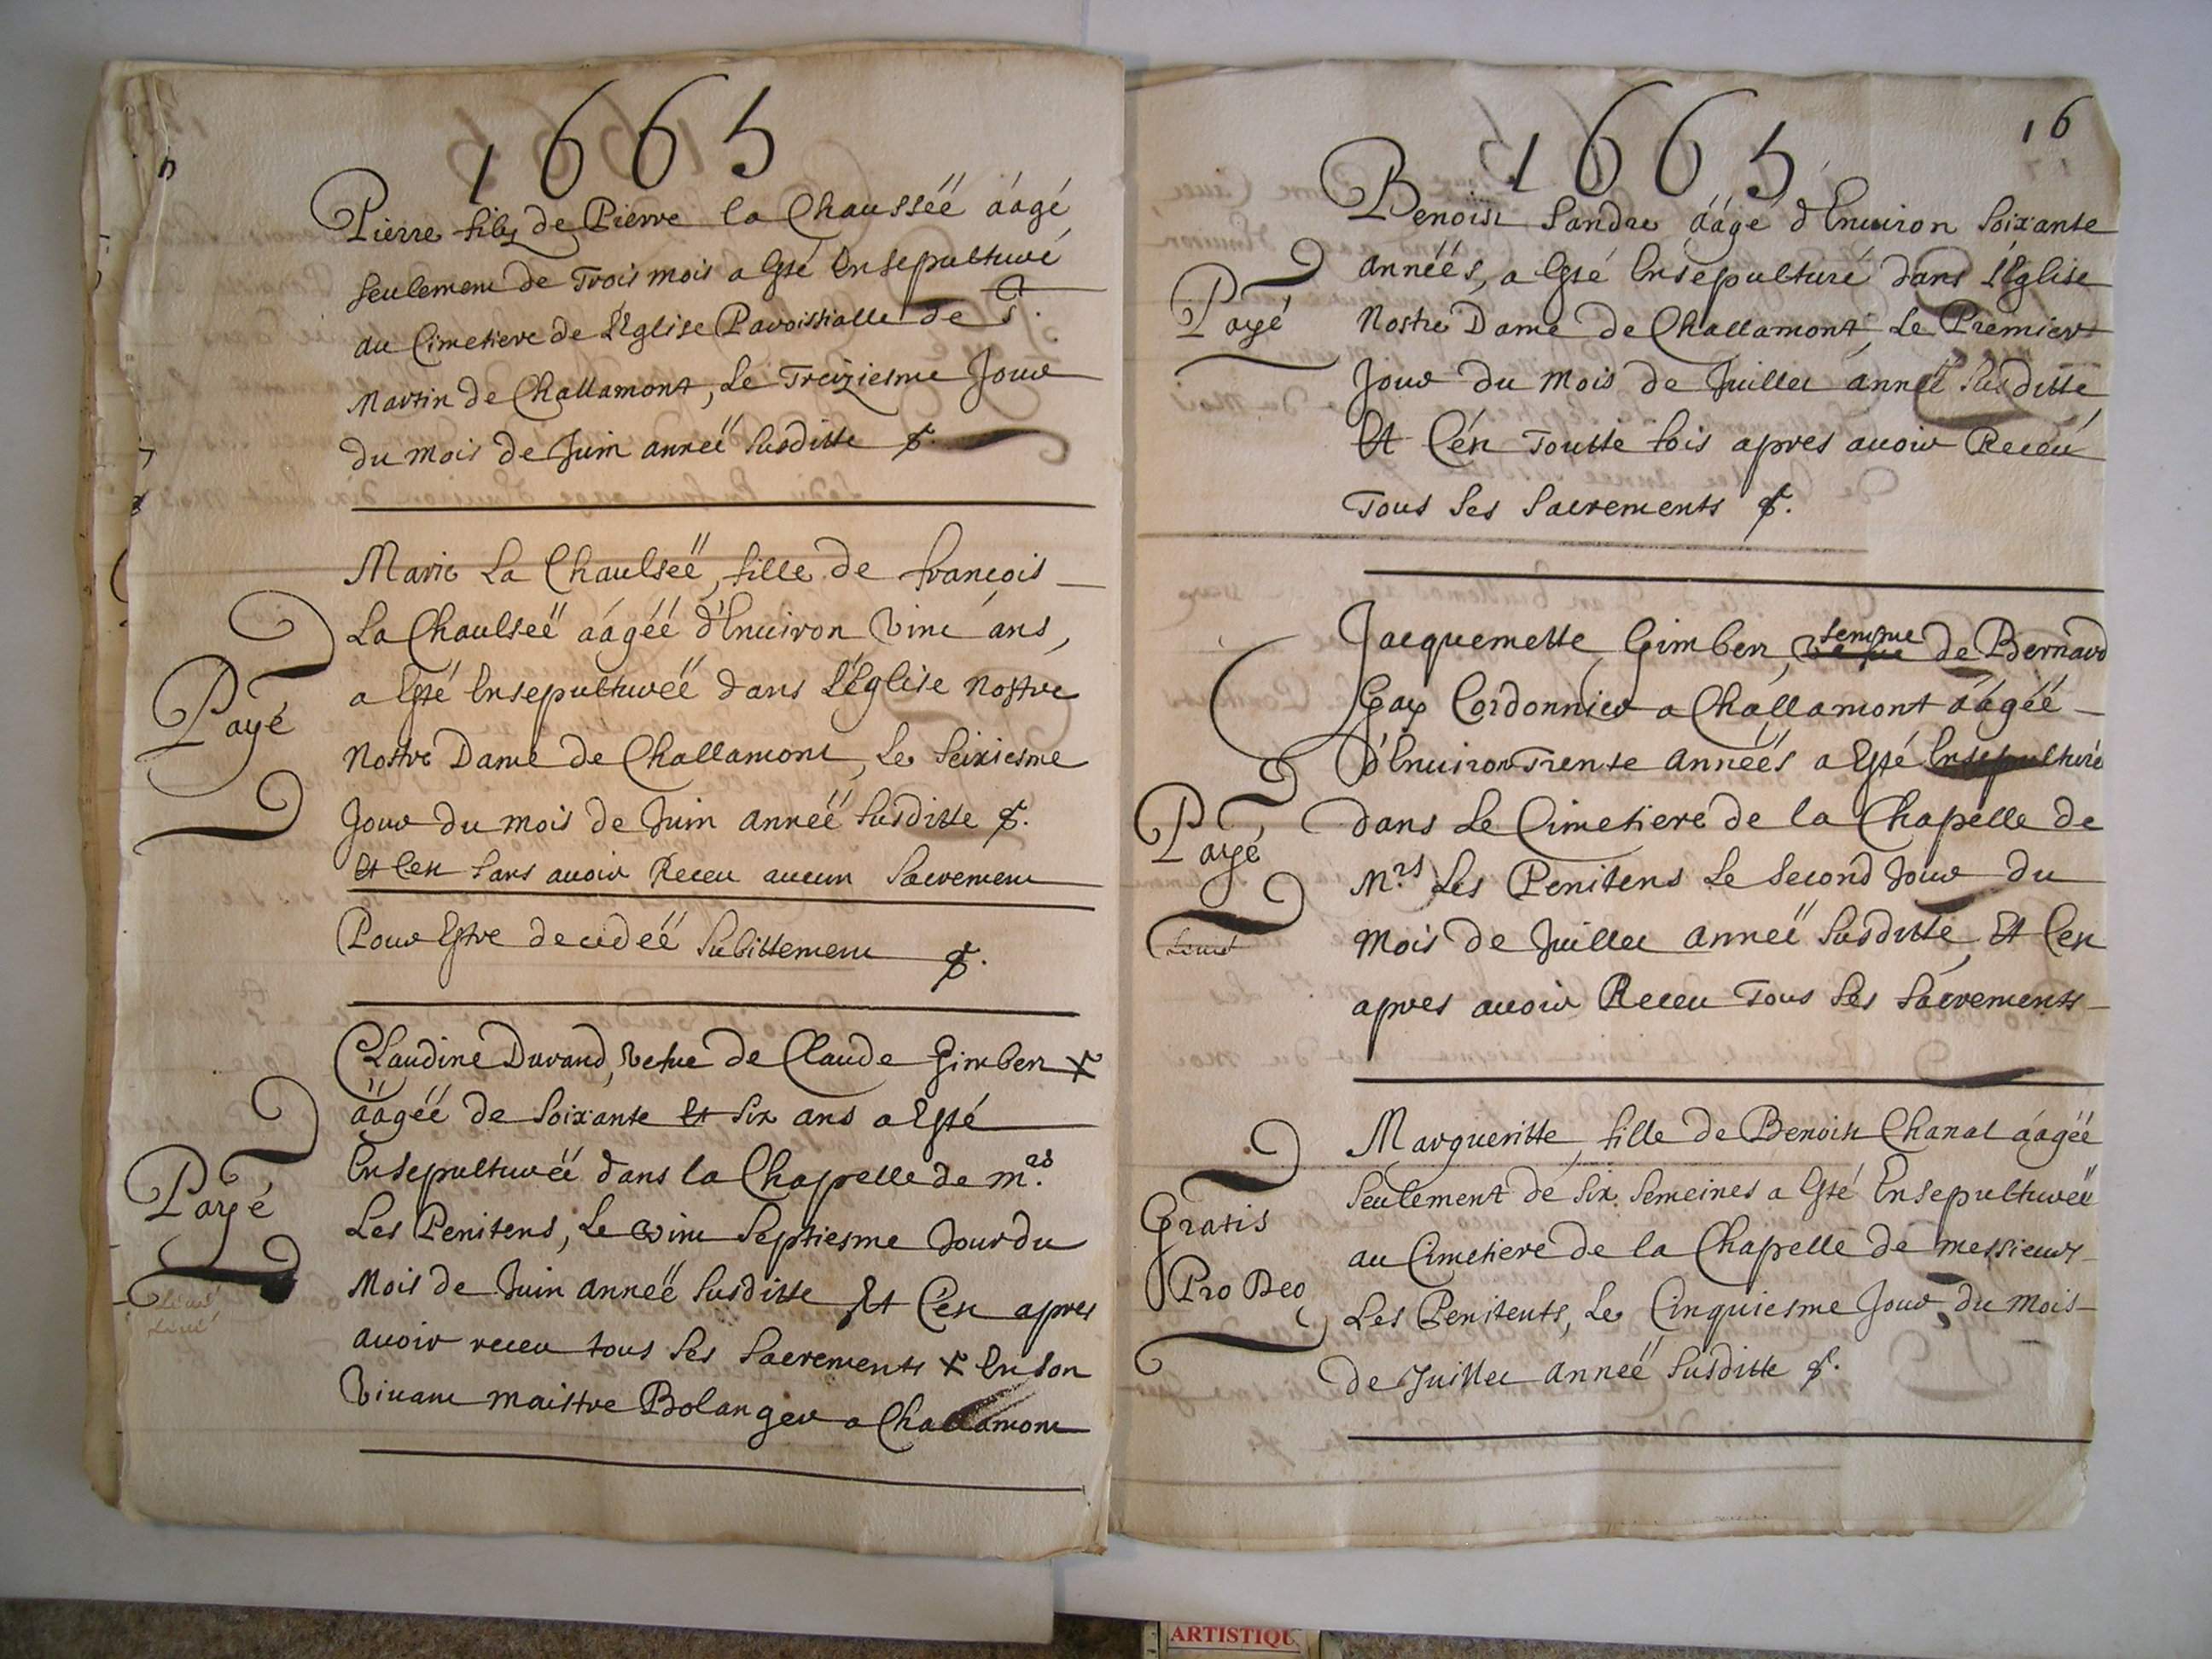 1665
Pierre filz de Pierre la Chausséë áágé
seulement de Trois mois a esté Ensepulturé
au Cimetiere de L'Eglise Paroissialle de S.t
Martin de Challamont, Le Treiziesme Jour
du mois de Juin annéë susditte &.
Payé
Marie La Chaulséë, fille de françois
La Chaulséë áágéé d'Enuiron vint ans,
a Esté Ensepulturéë dans L'Eglise nostre
nostre Dame de Challamont, Le seixiesme
Jour du mois de Juin annéë susditte &.
Et c'est sans auoir Receu aucun sacrement
Pour Estre decedéë subittement &.
Payé
Claudine Durand, vefue de Claude Gimbert X
ääágéé de soixante Et six ans a Esté
Ensepulturéë dans la Chapelle de m.rs
Les Penitens, Le vint septiesme Jour du
Mois de Juin annéë susditte Et C'est apres
auoir receu tous ses sacrements X En son
viuant maistre Bolanger a Challamont
16
1665
Payé
Benoist Sandre áágé d'Enuiron soixante
annéés, a Esté Ensepulturé dans L'Eglise
Nostre Dame de Challamont, Le Premier
Jour du mois de Juillet annéë susditte
Et C'ést Toutte fois apres auoir Receu
Tous ses sacrements &.
Payé
femme
Jacquemette Gimbert, vefue de Bernard
Gay Cordonnier a Challamont áágéë
d'Enuiron Trente annéés a Esté Ensepulturé
dans Le Cimetiere de la Chapelle de
M.rs Les Penitens Le second Jour du
Mois de Juillet annéë susditte, Et C'est
apres auoir Receu Tous ses sacrements
Gratis
Pro Deo
Margueritte, fille de Benoist Chanal áágéë
seulement de six semeines a Esté Ensepulturéë
au Cimetiere de la Chapelle de messieurs
Les Penitents, Le Cinquiesme Jour du mois
de Juillet annéë susditte &.
ARTISTIQU